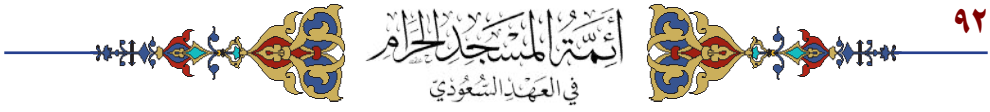 ٩٢
أئمة المسجد الحرام
في العهد السعودي